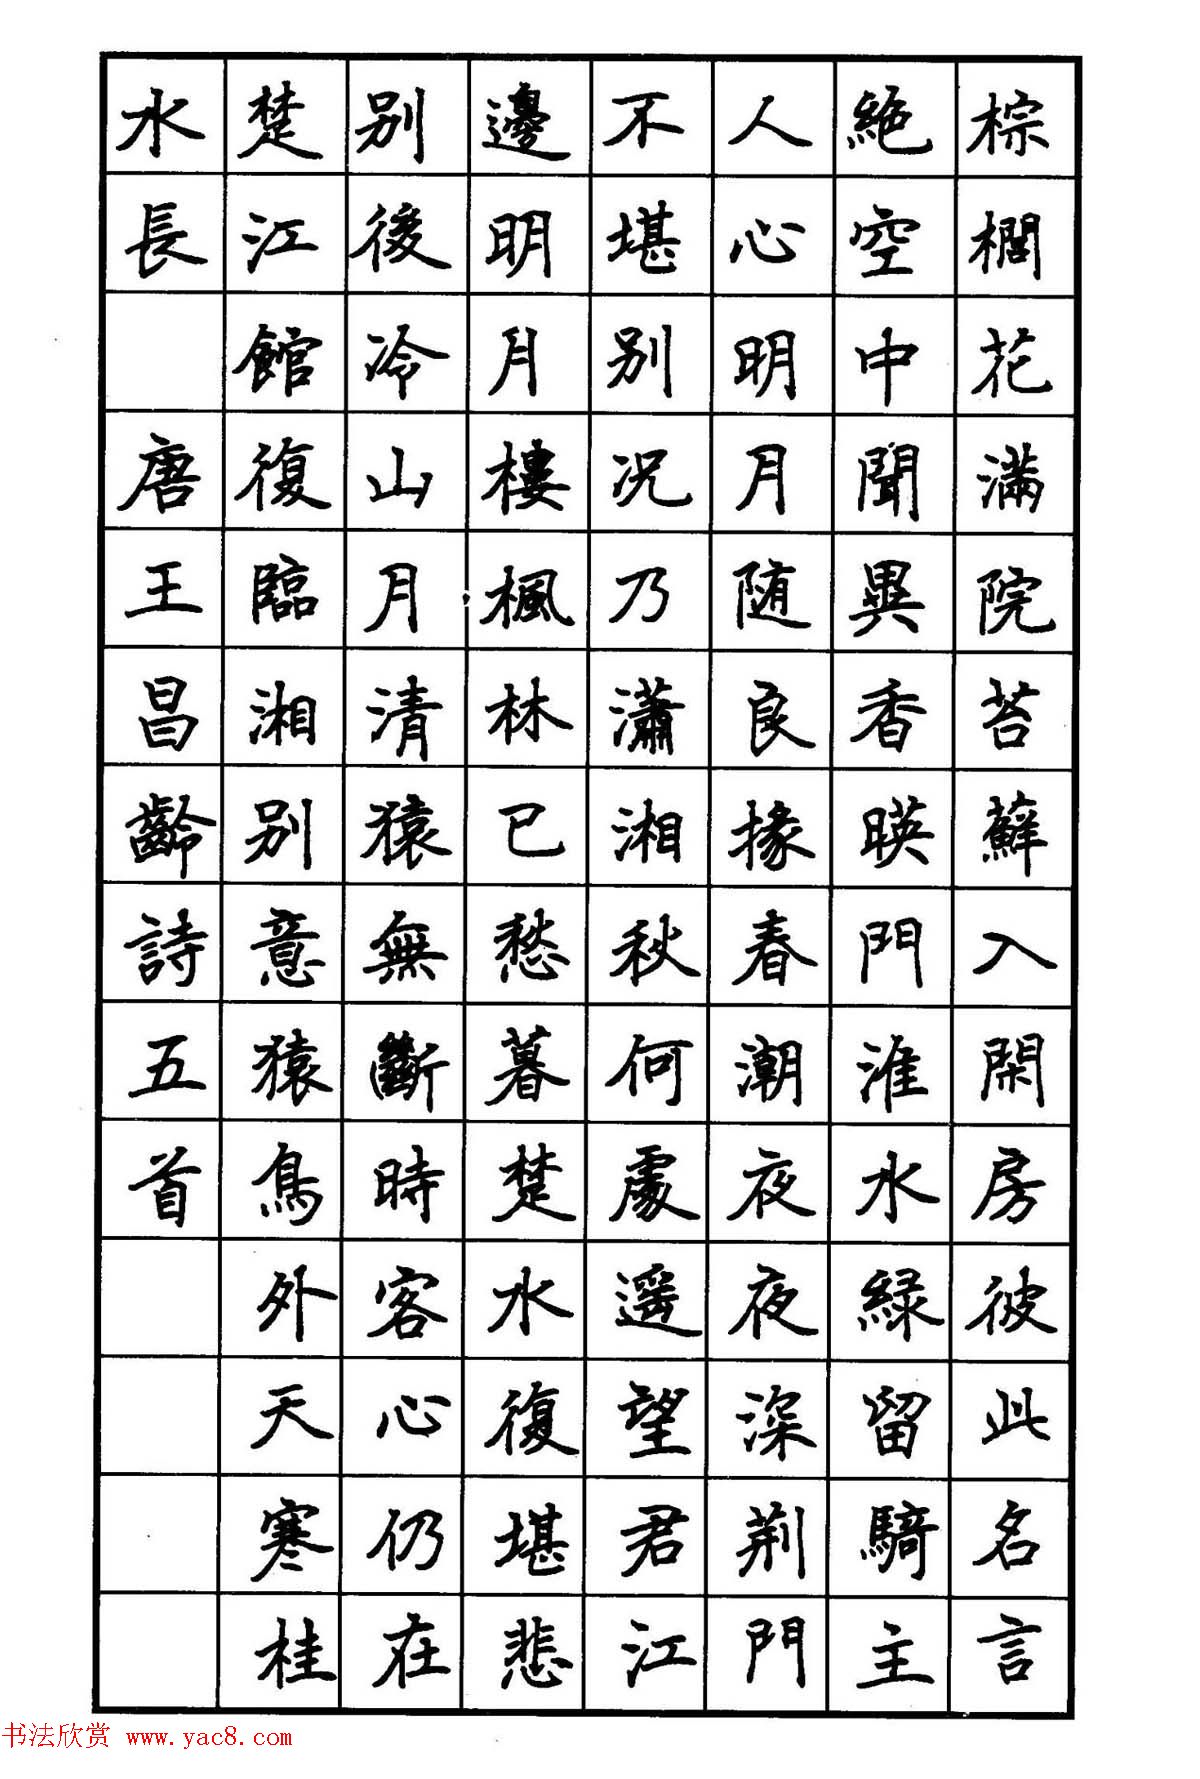 棕櫚花滿院苔蘚入閑房彼此名言
絶空中聞異香暎門淮水緑留騎主
人心明月随良掾春潮夜夜深荆門
不堪别况乃瀟湘秋何處遥望君江
邊明月樓楓林已愁暮楚水復堪悲
别後冷山月清猿無斷時客心仍在
楚江館復臨湘别意猿鳥外天寒桂
水長 唐王昌齡詩五首
书法欣赏 www.yac8.com